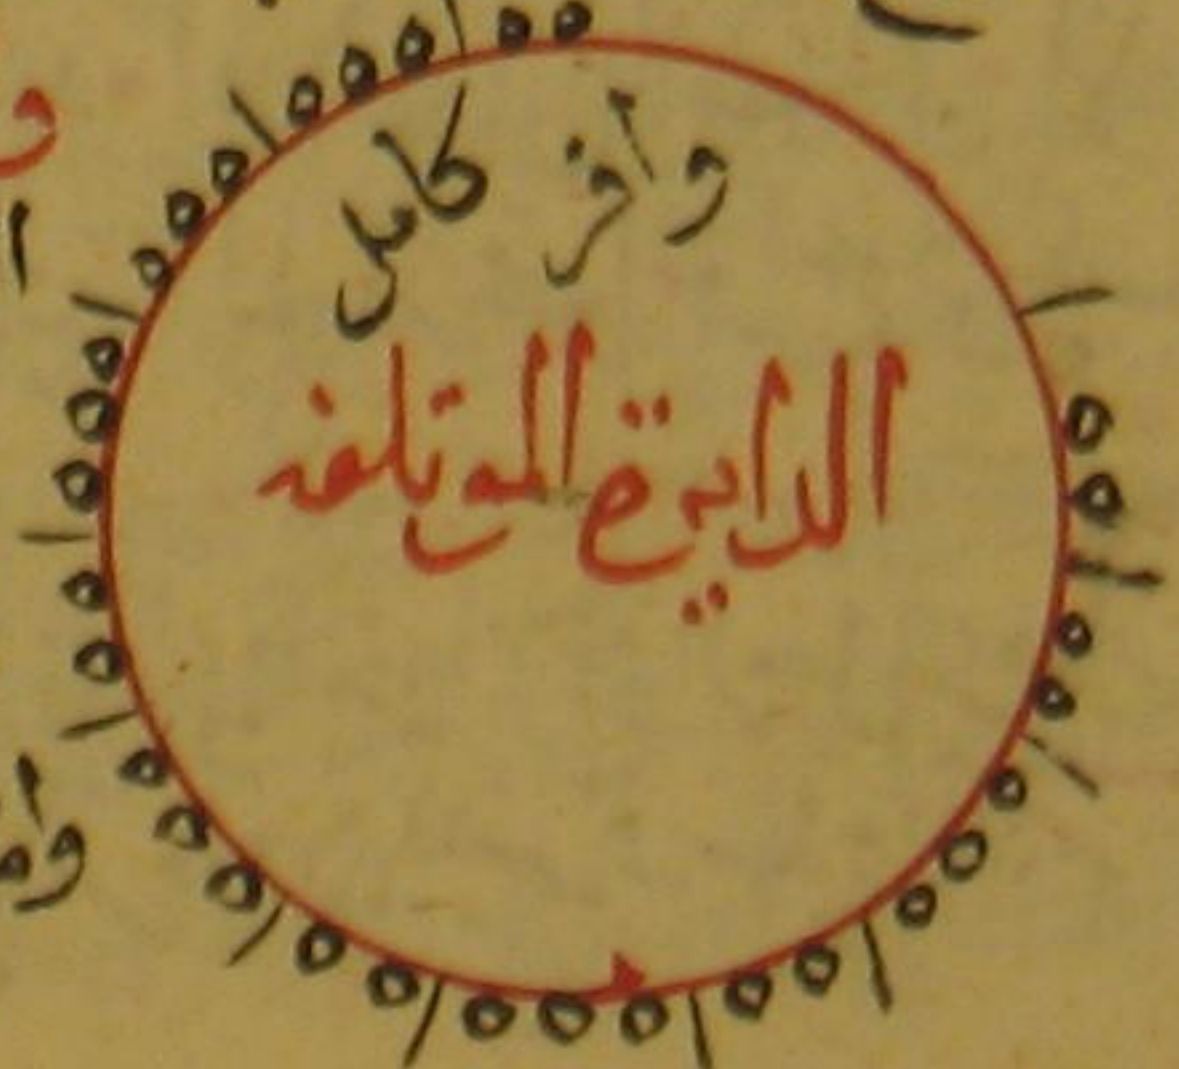 وافر كامل
الدايرة الموتلفه